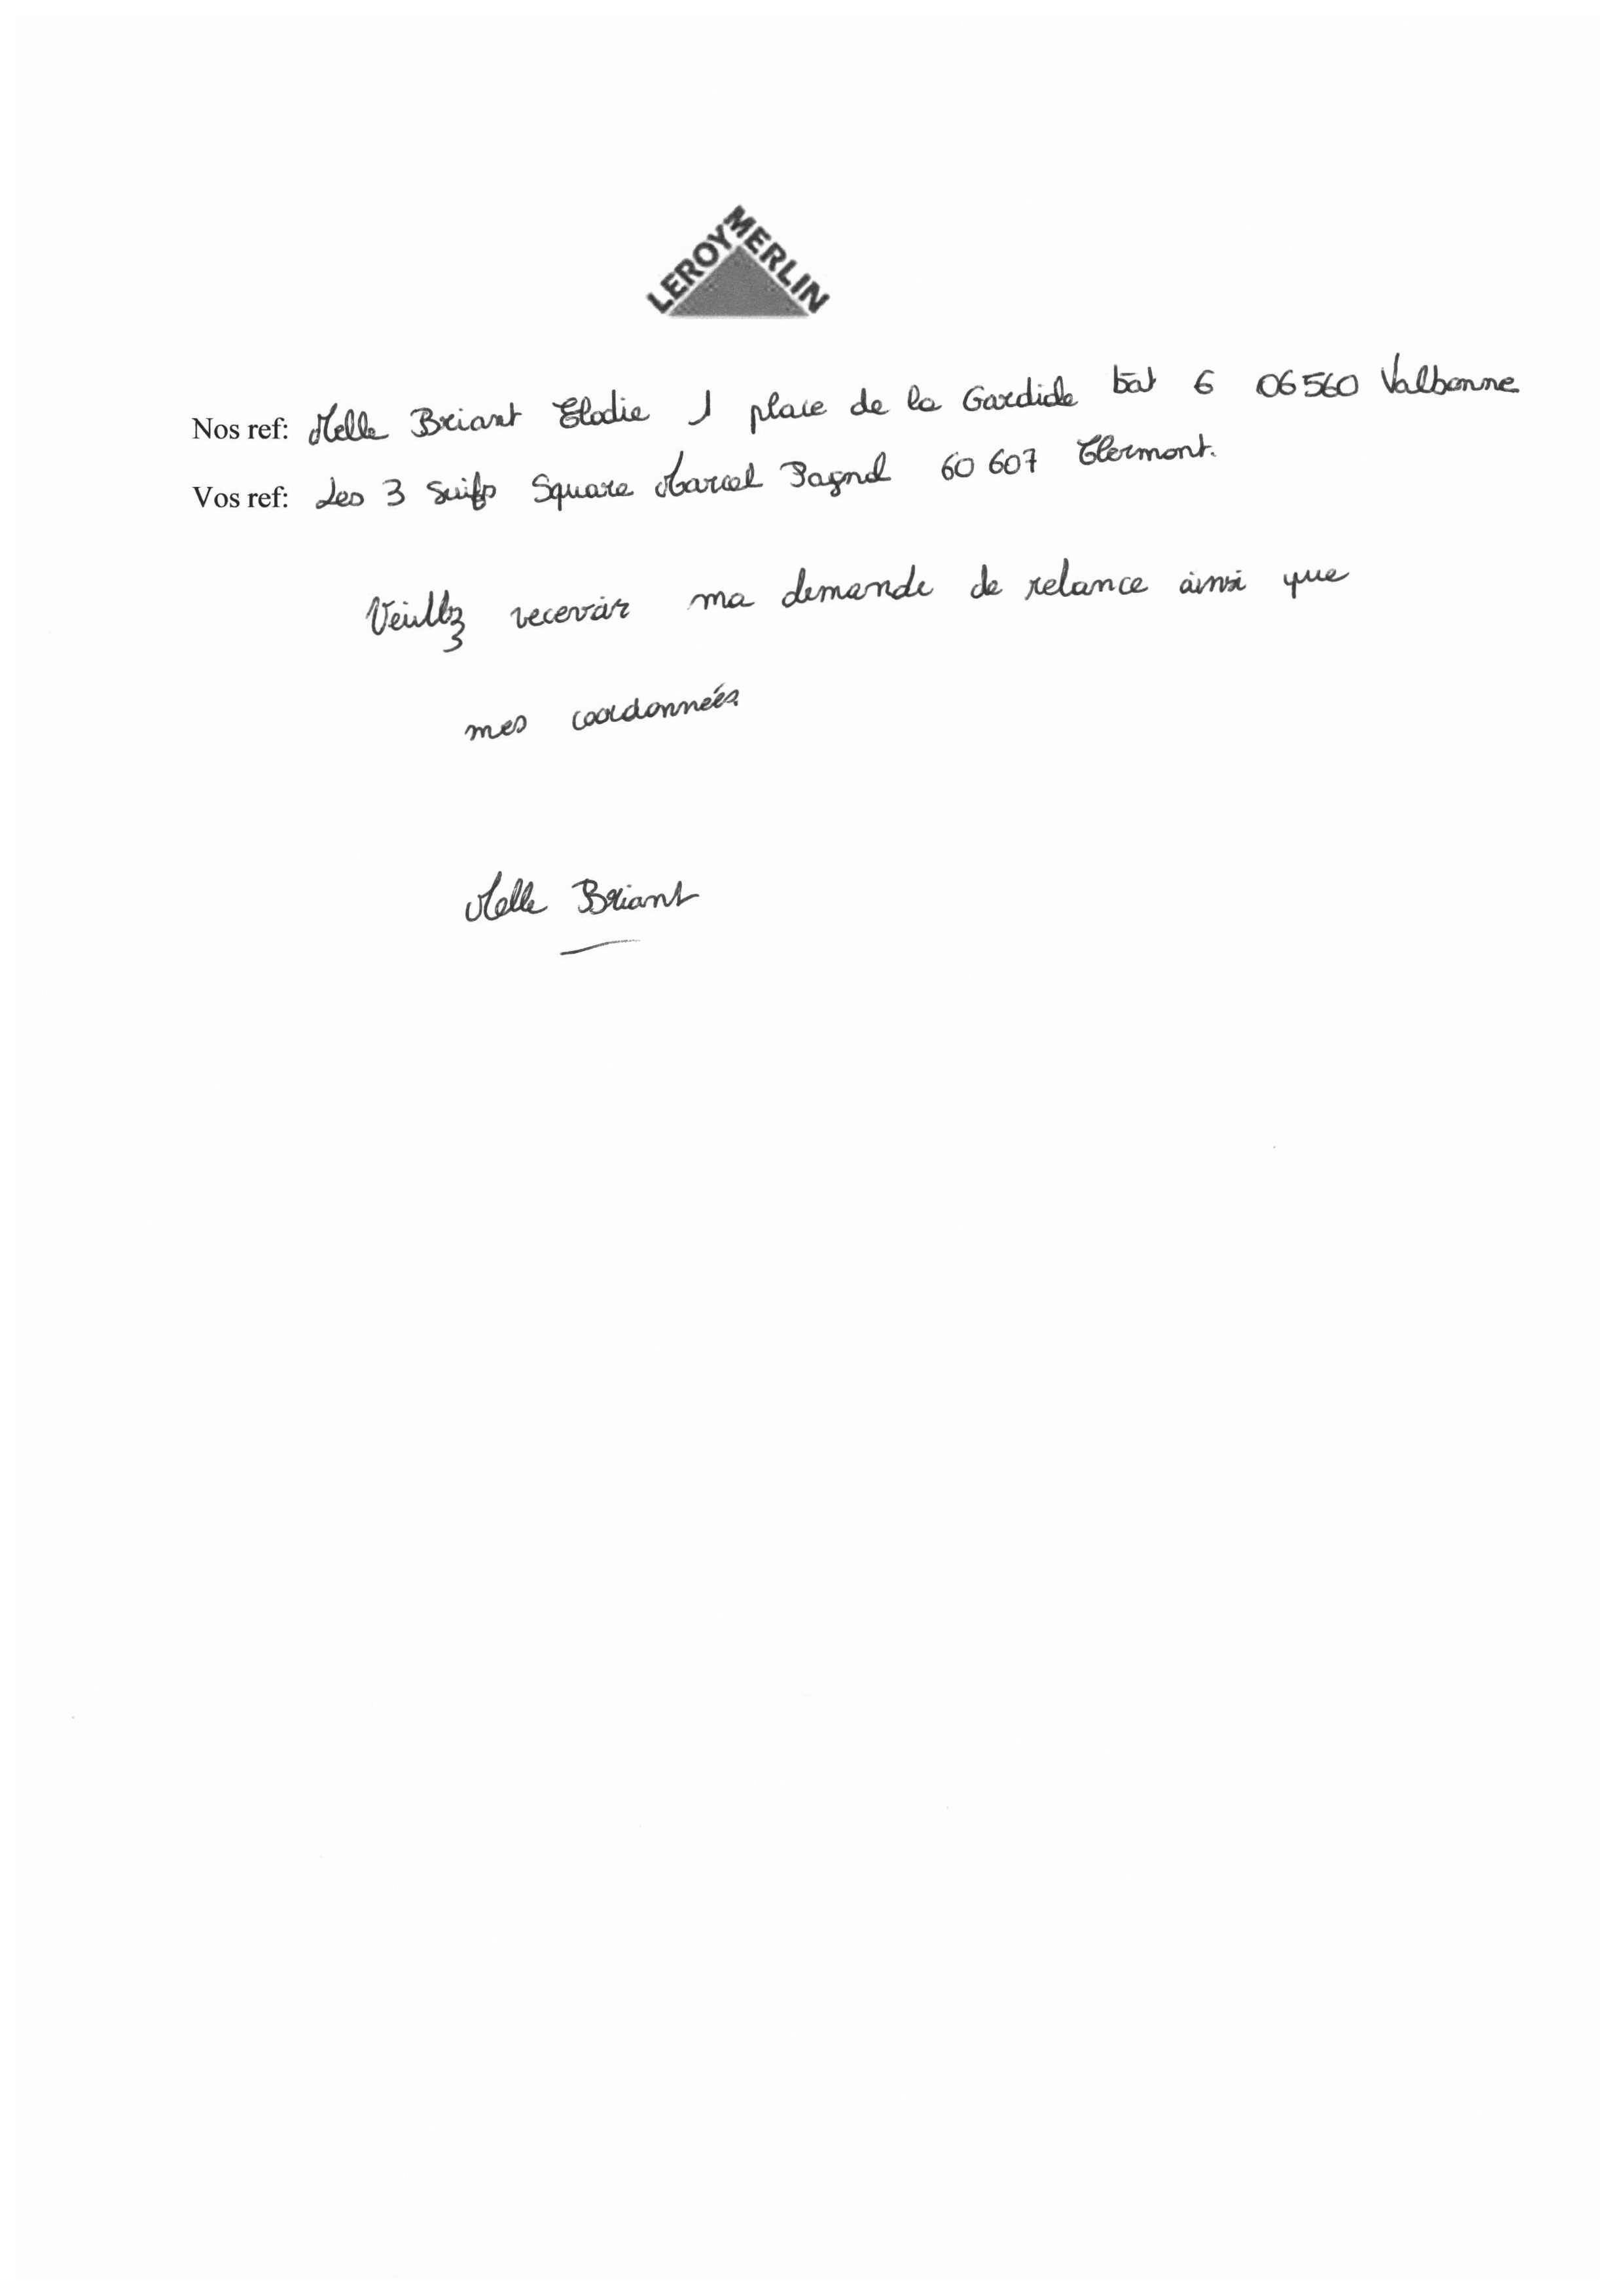 LEROY MERLIN
Nos ref: Melle Briant Elodie 1 place de la Gardiole bât 6 06560 Valbonne
Vos ref: Les 3 Suifs Square Marcel Pagnol 60 607 Clermont.
Veuillez recevoir ma demande de relance ainsi que
mes coordonnées.
Melle Briant